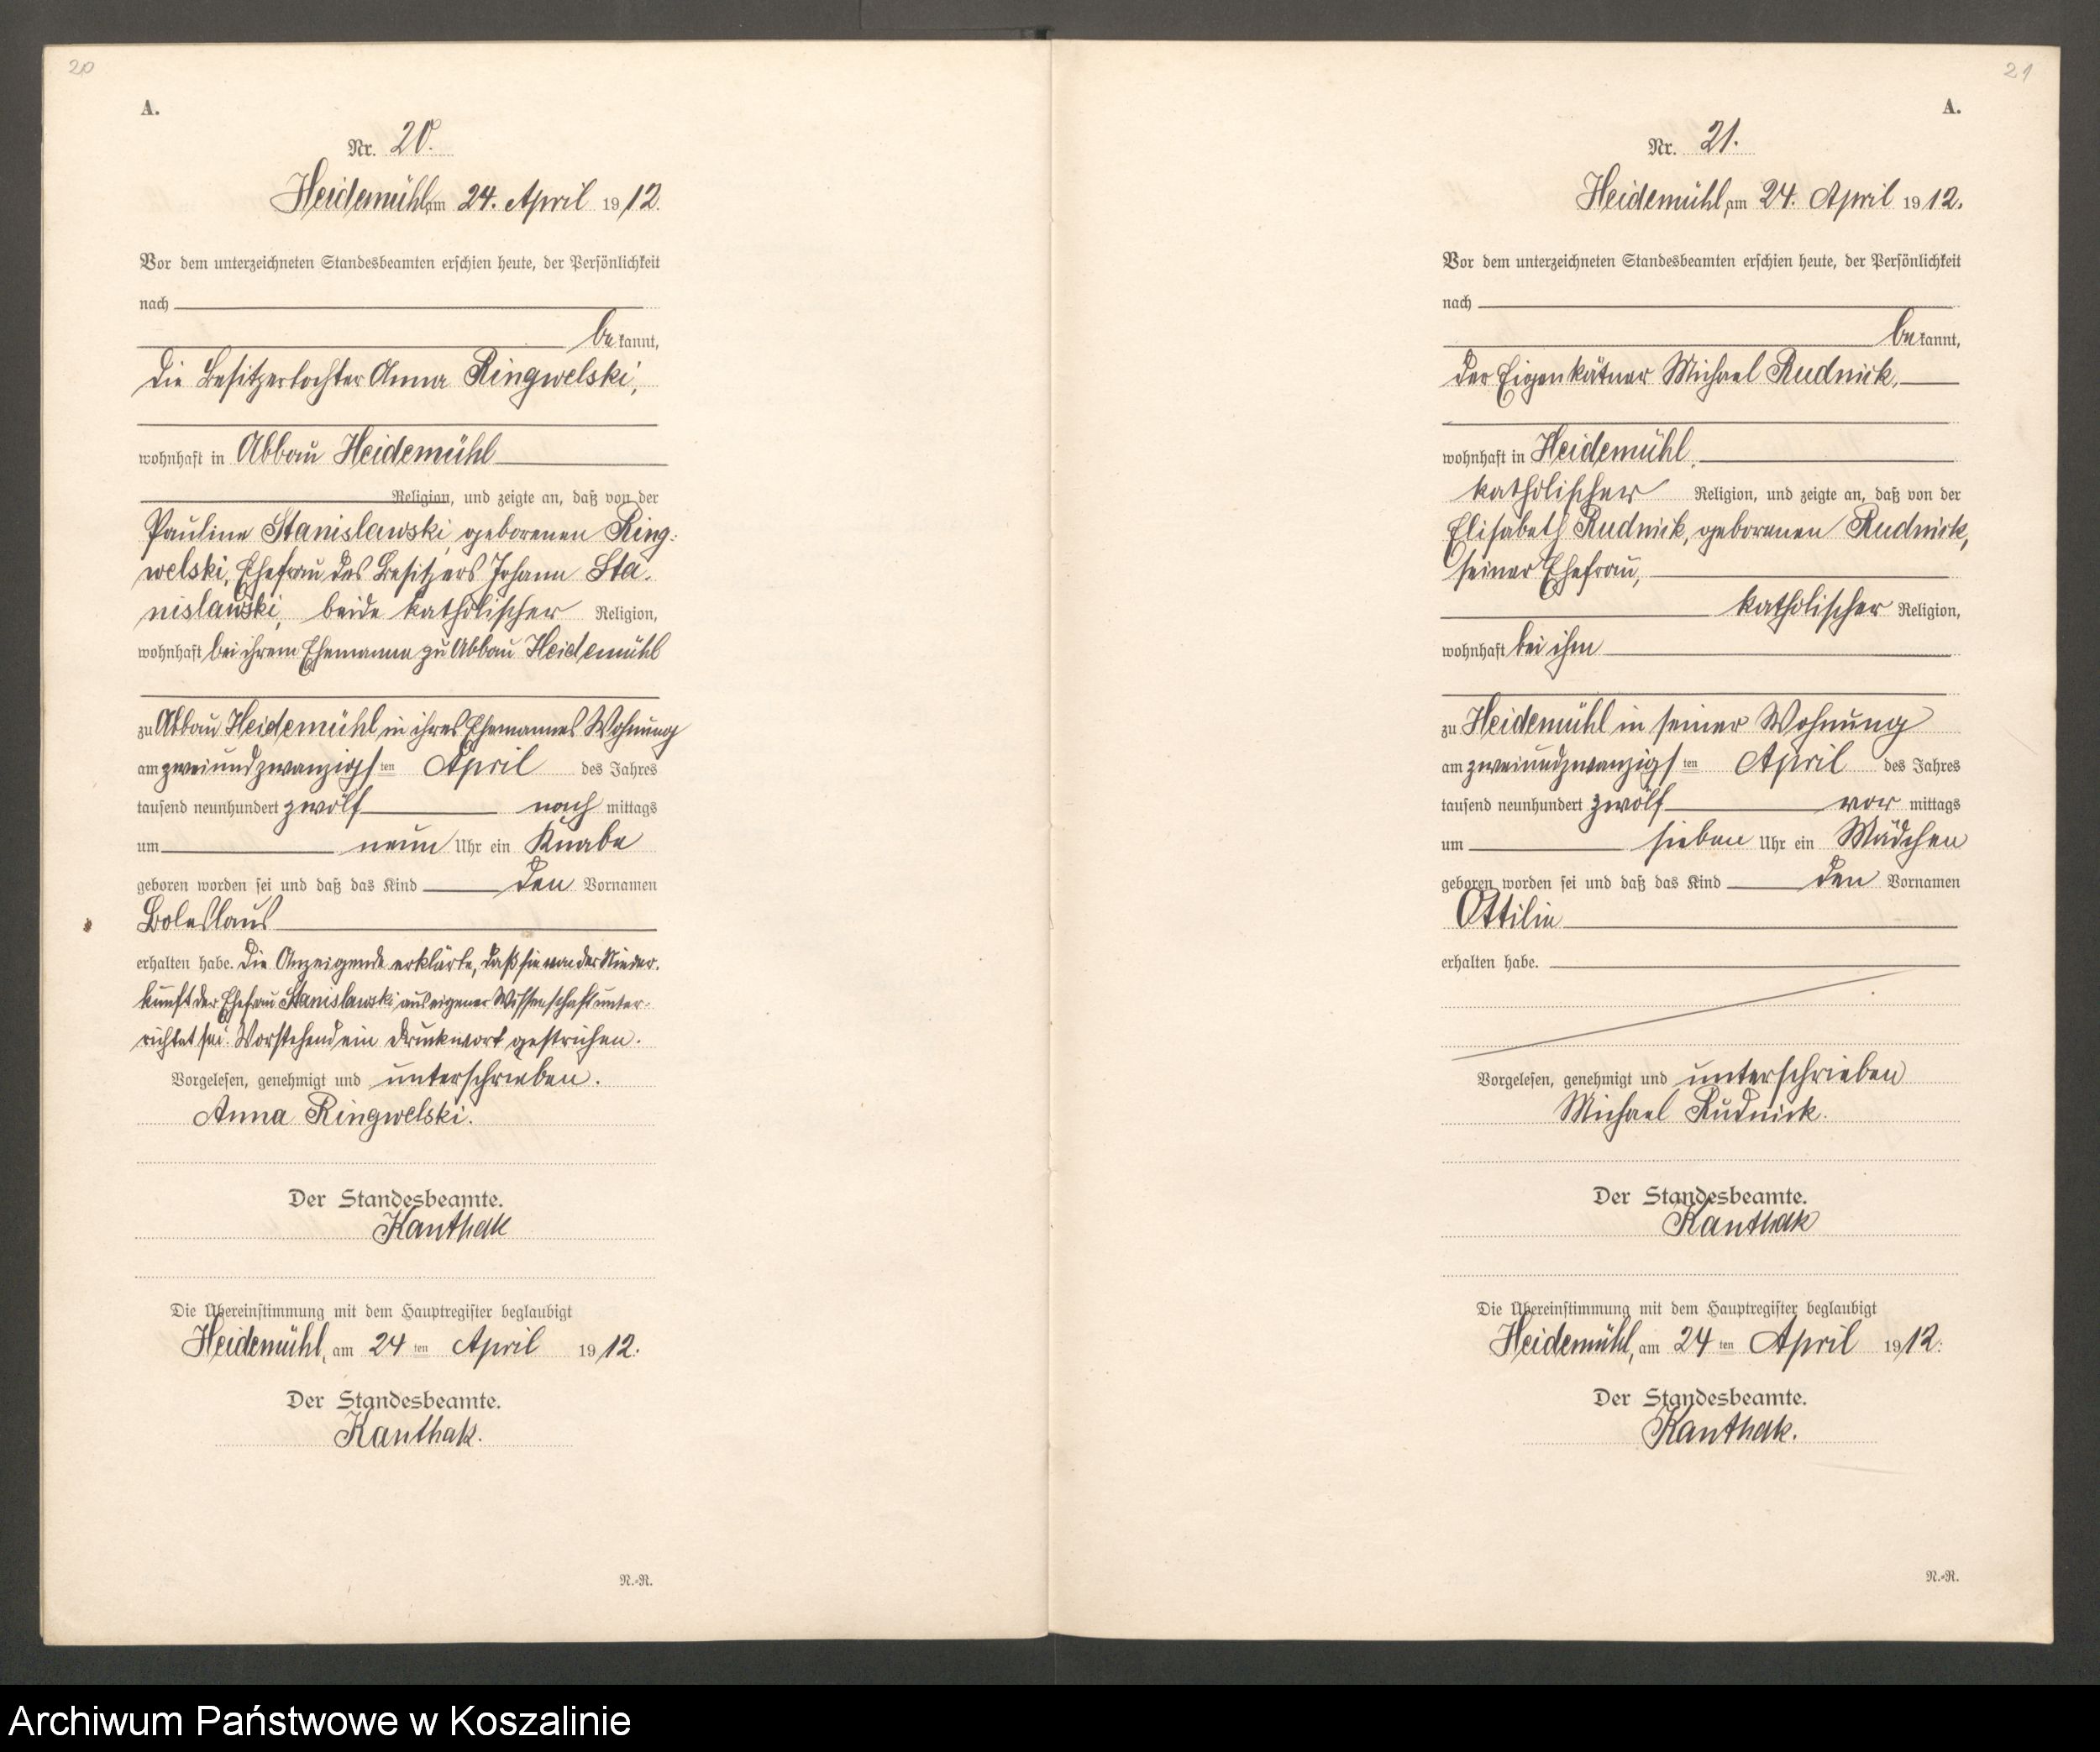 20
A.
Nr. 20.
Heidemühl, am 24. April 1912.
Vor dem unterzeichneten Standesbeamten erschien heute, der Persönlichkeit
nach
bekannt,
die Besitzertochter Anna Ringwelski,
wohnhaft in Abbau Heidemühl
Religion, und zeigte an, daß von der
Pauline Stanislawski, geborenen Ring-
welski, Ehefrau des Besitzers Johann Sta-
nislawski, beide katholischer Religion,
wohnhaft bei ihrem Ehemanne zu Abbau Heidemühl
zu Abbau Heidemühl in ihres Ehemannes Wohnung
am zweiundzwanzigsten April des Jahres
tausend neunhundert zwölf nachmittags
um neun Uhr ein Knabe
geboren worden sei und daß das Kind den Vornamen
Boleslaus
erhalten habe. Die Anzeigende erklärte, daß sie von der Nieder-
kunft der Ehefrau Stanislawski aus eigener Wissenschaft unter-
richtet sei. Vorstehend ein Druckwort gestrichen.
Vorgelesen, genehmigt und unterschrieben.
Anna Ringwelski.
Der Standesbeamte.
Kanthak
Die Übereinstimmung mit dem Hauptregister beglaubigt
Heidemühl, am 24ten April 1912.
Der Standesbeamte.
Kanthak.
N.-R.
21
A.
Nr. 21.
Heidemühl, am 24. April 1912.
Vor dem unterzeichneten Standesbeamten erschien heute, der Persönlichkeit
nach
bekannt,
der Eigenkätner Michael Rudnick,
wohnhaft in Heidemühl,
katholischer Religion, und zeigte an, daß von der
Elisabeth Rudnick, geborenen Rudnick,
seiner Ehefrau,
katholischer Religion,
wohnhaft bei ihm
zu Heidemühl in seiner Wohnung
am zweiundzwanzigsten April des Jahres
tausend neunhundert zwölf vormittags
um sieben Uhr ein Mädchen
geboren worden sei und daß das Kind den Vornamen
Ottilie
erhalten habe.
Vorgelesen, genehmigt und unterschrieben
Michael Rudnick.
Der Standesbeamte.
Kanthak
Die Übereinstimmung mit dem Hauptregister beglaubigt
Heidemühl, am 24ten April 1912.
Der Standesbeamte.
Kanthak.
N.-R.
Archiwum Państwowe w Koszalinie